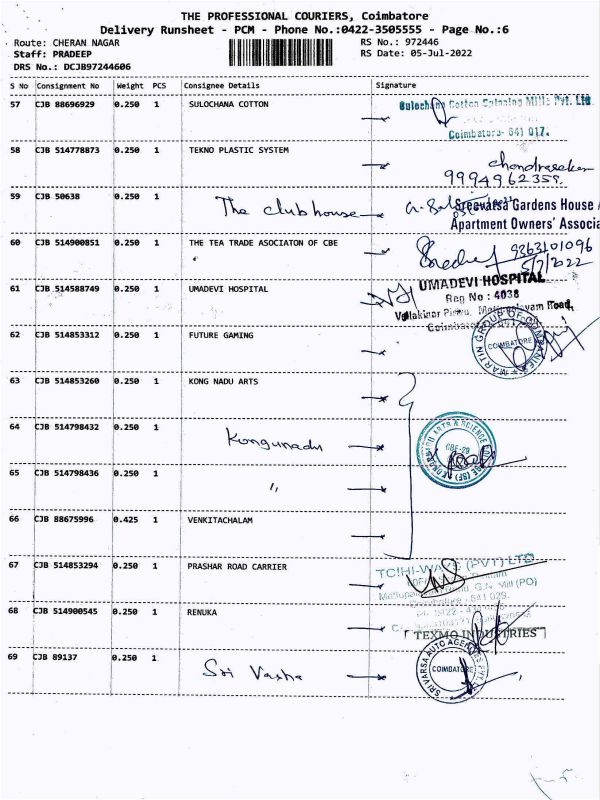 THE PROFESSIONAL COURIERS, Coimbatore
Delivery Runsheet - PCM - Phone No.:0422-3505555 - Page No.:6
Route: CHERAN NAGAR RS No.: 972446
Staff: PRADEEP RS Date: 05-Jul-2022
DRS No.: DCJB97244606
S No Consignment No Weight PCS Consignee Details Signature
57 CJB 88696929 0.250 1 SULOCHANA COTTON
Sulochana Cotton Spinning Mills Pvt. Ltd.
Coimbatore - 641 017.
58 CJB 514778873 0.250 1 TEKNO PLASTIC SYSTEM
chandrasekar
9994962359.
59 CJB 50638 0.250 1 The club house
Sreevarsa Gardens House
Apartment Owners' Associa
60 CJB 514900851 0.250 1 THE TEA TRADE ASOCIATON OF CBE
9363101096
5/7/2022
61 CJB 514588749 0.250 1 UMADEVI HOSPITAL
UMADEVI HOSPITAL
Reg No : 4038
Road,
62 CJB 514853312 0.250 1 FUTURE GAMING
MARTIN GROUP OF COMPANIES
COIMBATORE
63 CJB 514853260 0.250 1 KONG NADU ARTS
64 CJB 514798432 0.250 1 Kongunadu
ARTS & SCIENCE
CBE-29
65 CJB 514798436 0.250 1 "
66 CJB 88675996 0.425 1 VENKITACHALAM
67 CJB 514853294 0.250 1 PRASHAR ROAD CARRIER
(PVT) LTD
G.N. Mill (PO)
641 029.
68 CJB 514900545 0.250 1 RENUKA
TEXMO INDUSTRIES
69 CJB 89137 0.250 1 Sri Vasha
SRI VARSA AUTO AGENCIES PVT. LTD
COIMBATORE